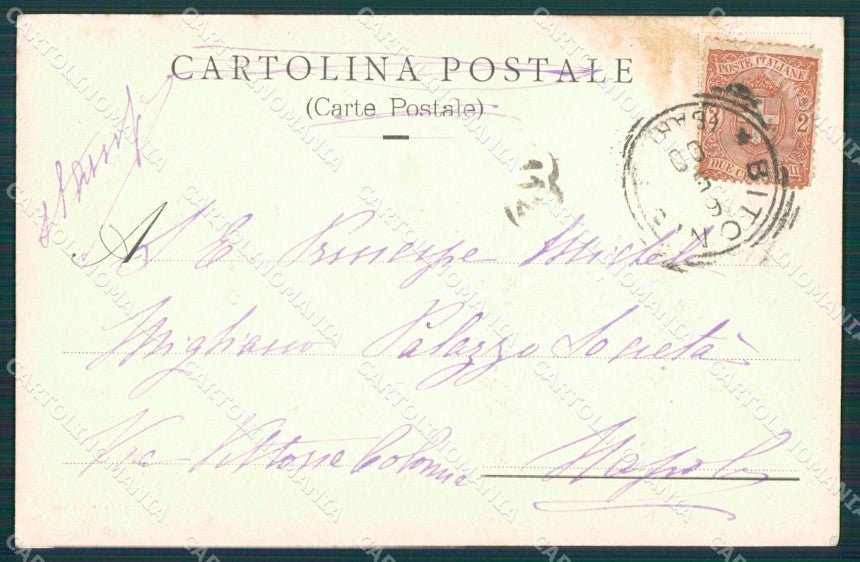 CARTOLINA POSTALE
(Carte Postale)
Stampe
POSTE ITALIANE
2
DUE
BITON
BARI
A S E Principe Michele
Migliano Palazzo Società
Via Vittoria Colonna Napoli
CARTOLINOMANIA